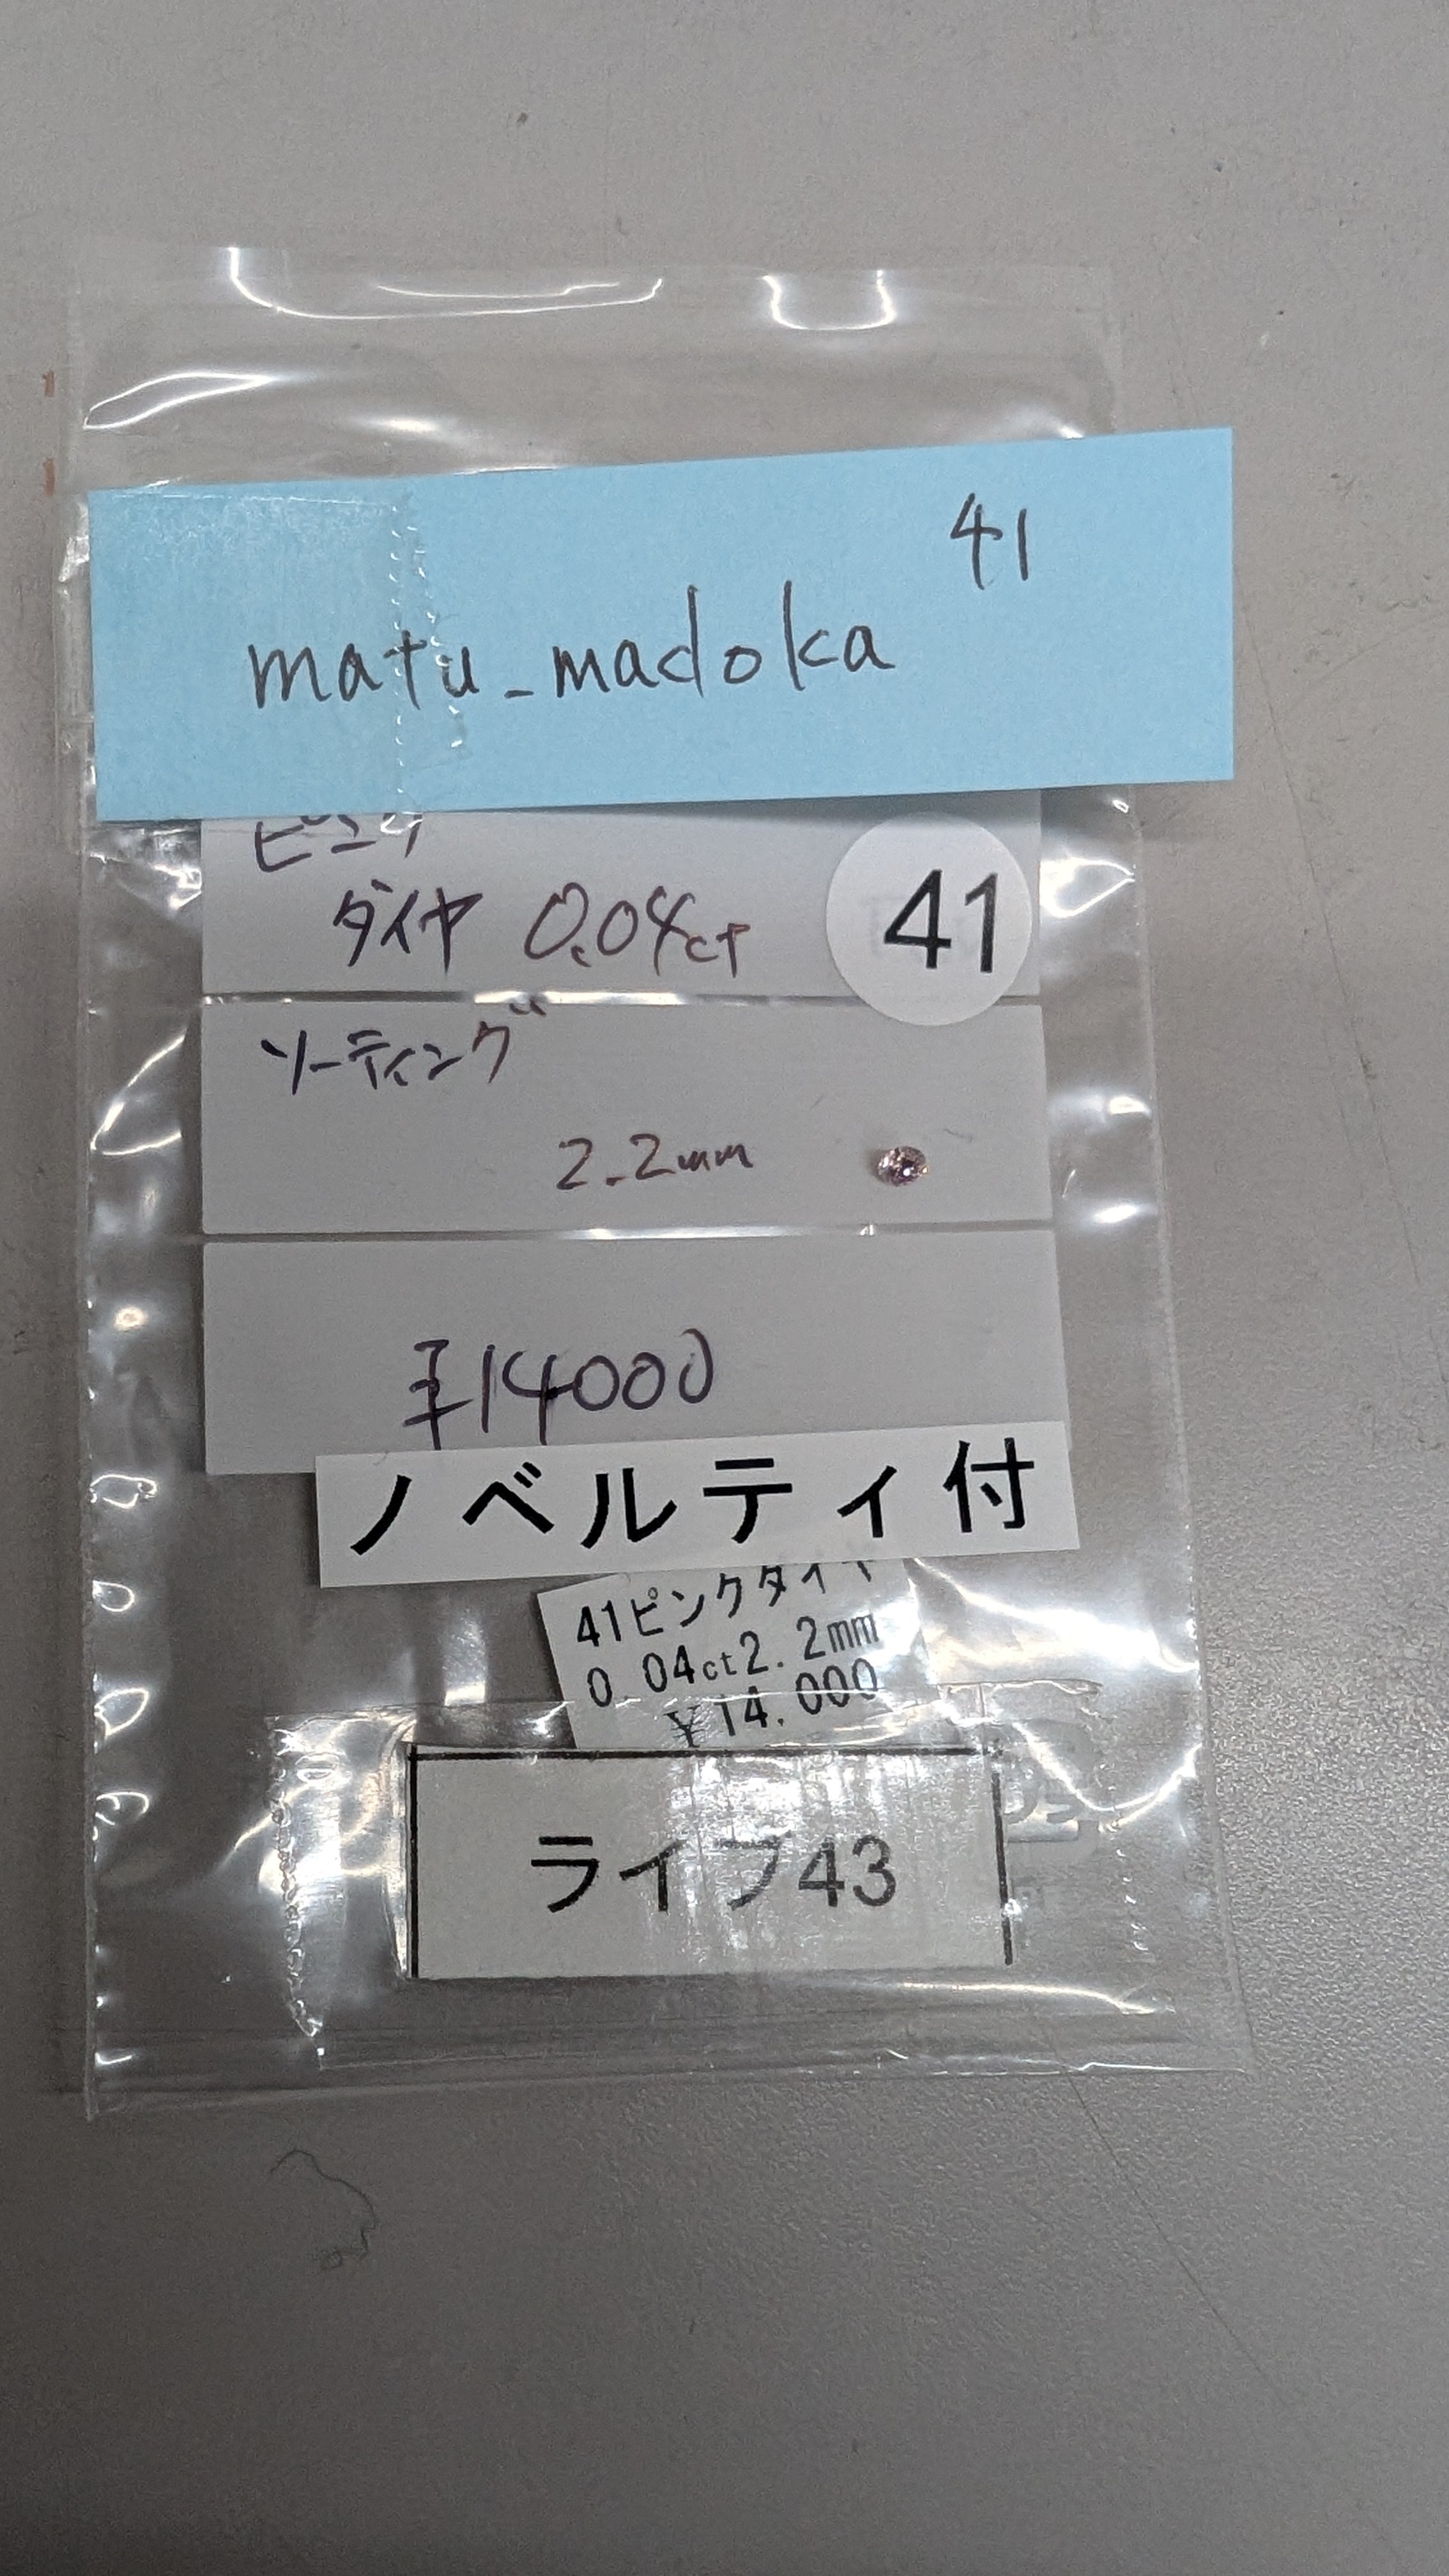 41
matu_madoka
ピンク
ダイヤ 0.04ct
41
ソーティング
2.2mm
¥14000
ノベルティ付
41ピンクダイヤ
0.04ct2.2mm
¥14.000
ライブ43